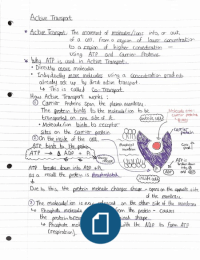 Active Transport
* Active Transport: The movement of molecules/ions into or out
of a cell from a region of lower concentration
to a region of higher concentration
using ATP and Carrier Proteins
* Why ATP is used in Active Transport:
• Directly move molecules
• Individually move molecules using a concentration gradient
already set up by direct active transport
↳ This is called Co-Transport
How Active Transport works:
① Carrier Proteins span the plasma membrane
The protein binds to the molecule/ion to be
transported on one side of it
• Molecule/ion binds to receptor
sites on the carrier protein
② On the inside of the cell
ATP binds to the protein
ATP → ADP + Pi
ATP breaks down into ADP + Pi
as a result the protein is Phosphorylated
Due to this, the protein molecule changes shape - opens on the opposite side
of the membrane
③ The molecule/ion is released on the other side of the membrane
↳ Phosphate molecule from the protein - causes
the protein to its original shape.
↳ Phosphate molecule with the ADP to form ATP
(respiration).
carrier
protein